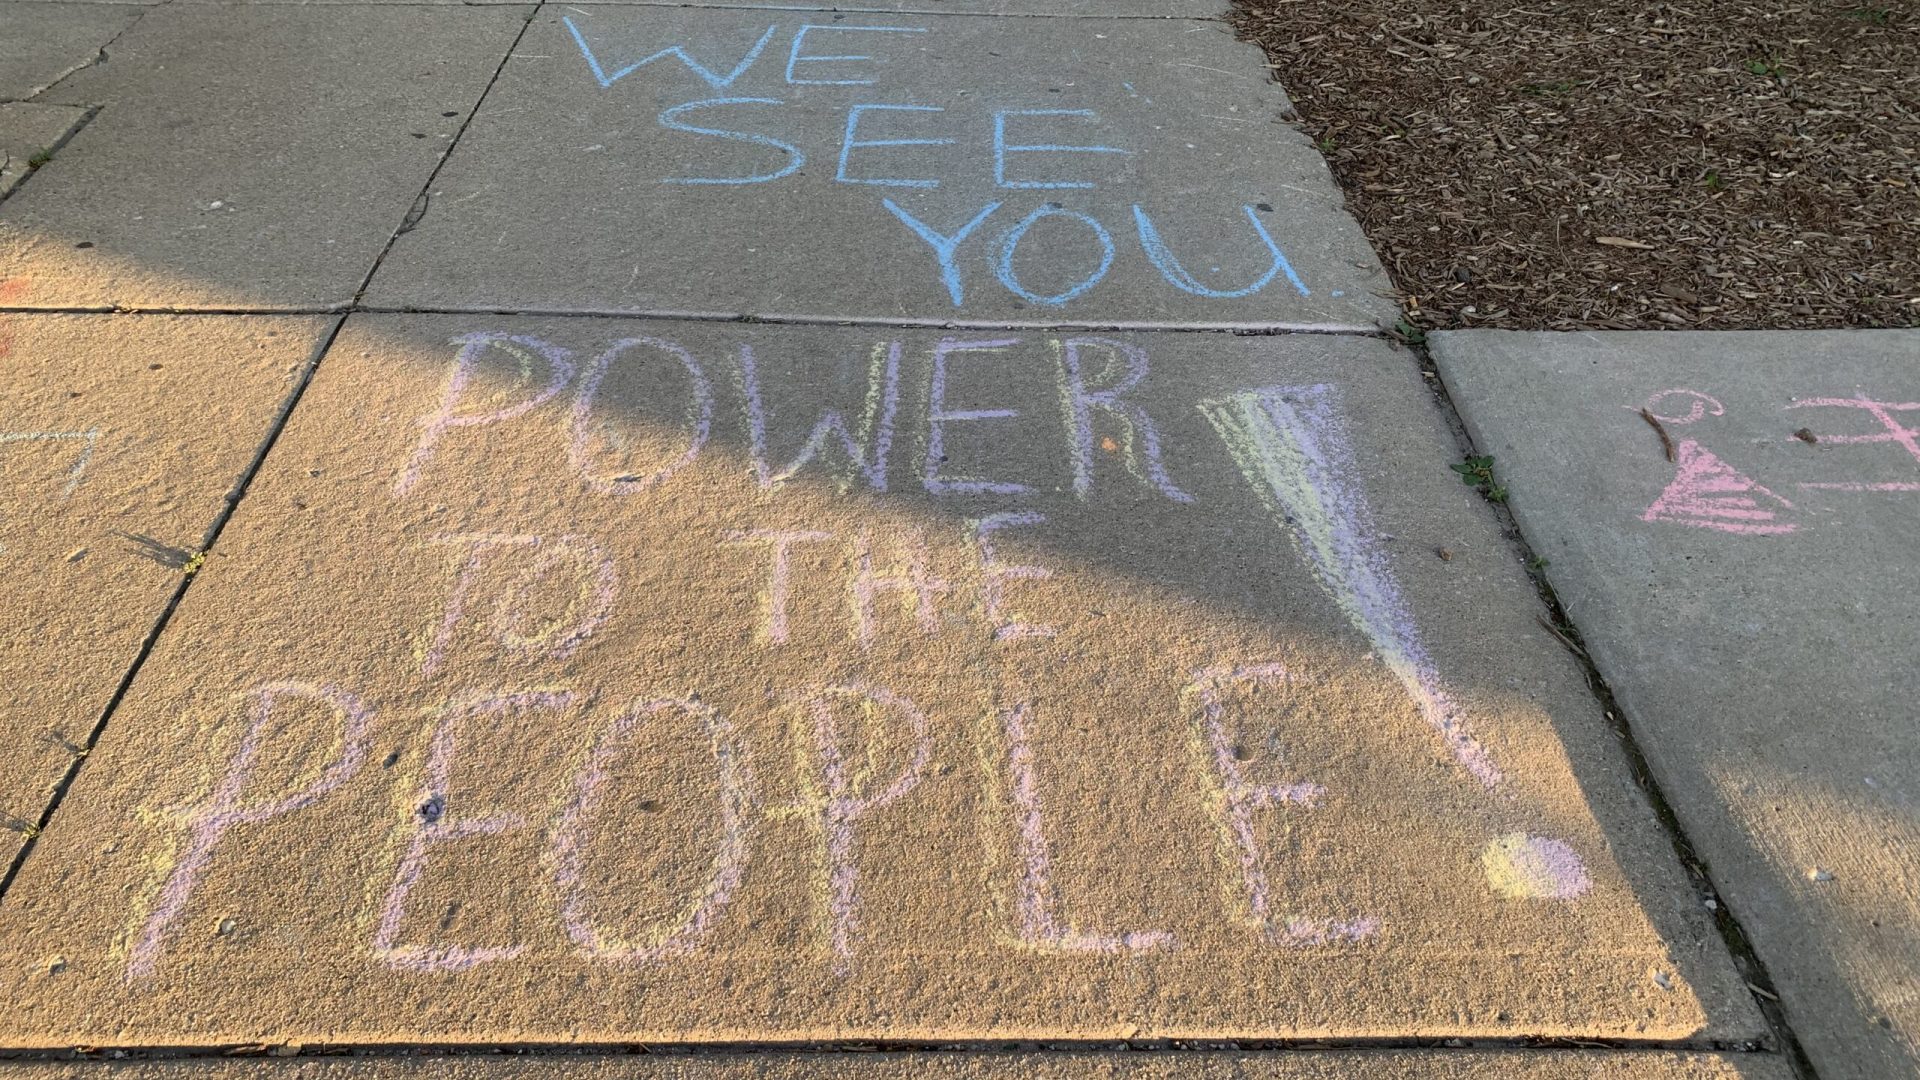 WE
SEE
YOU.
POWER
TO THE
PEOPLE!